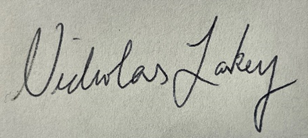 Nicholas Lakey